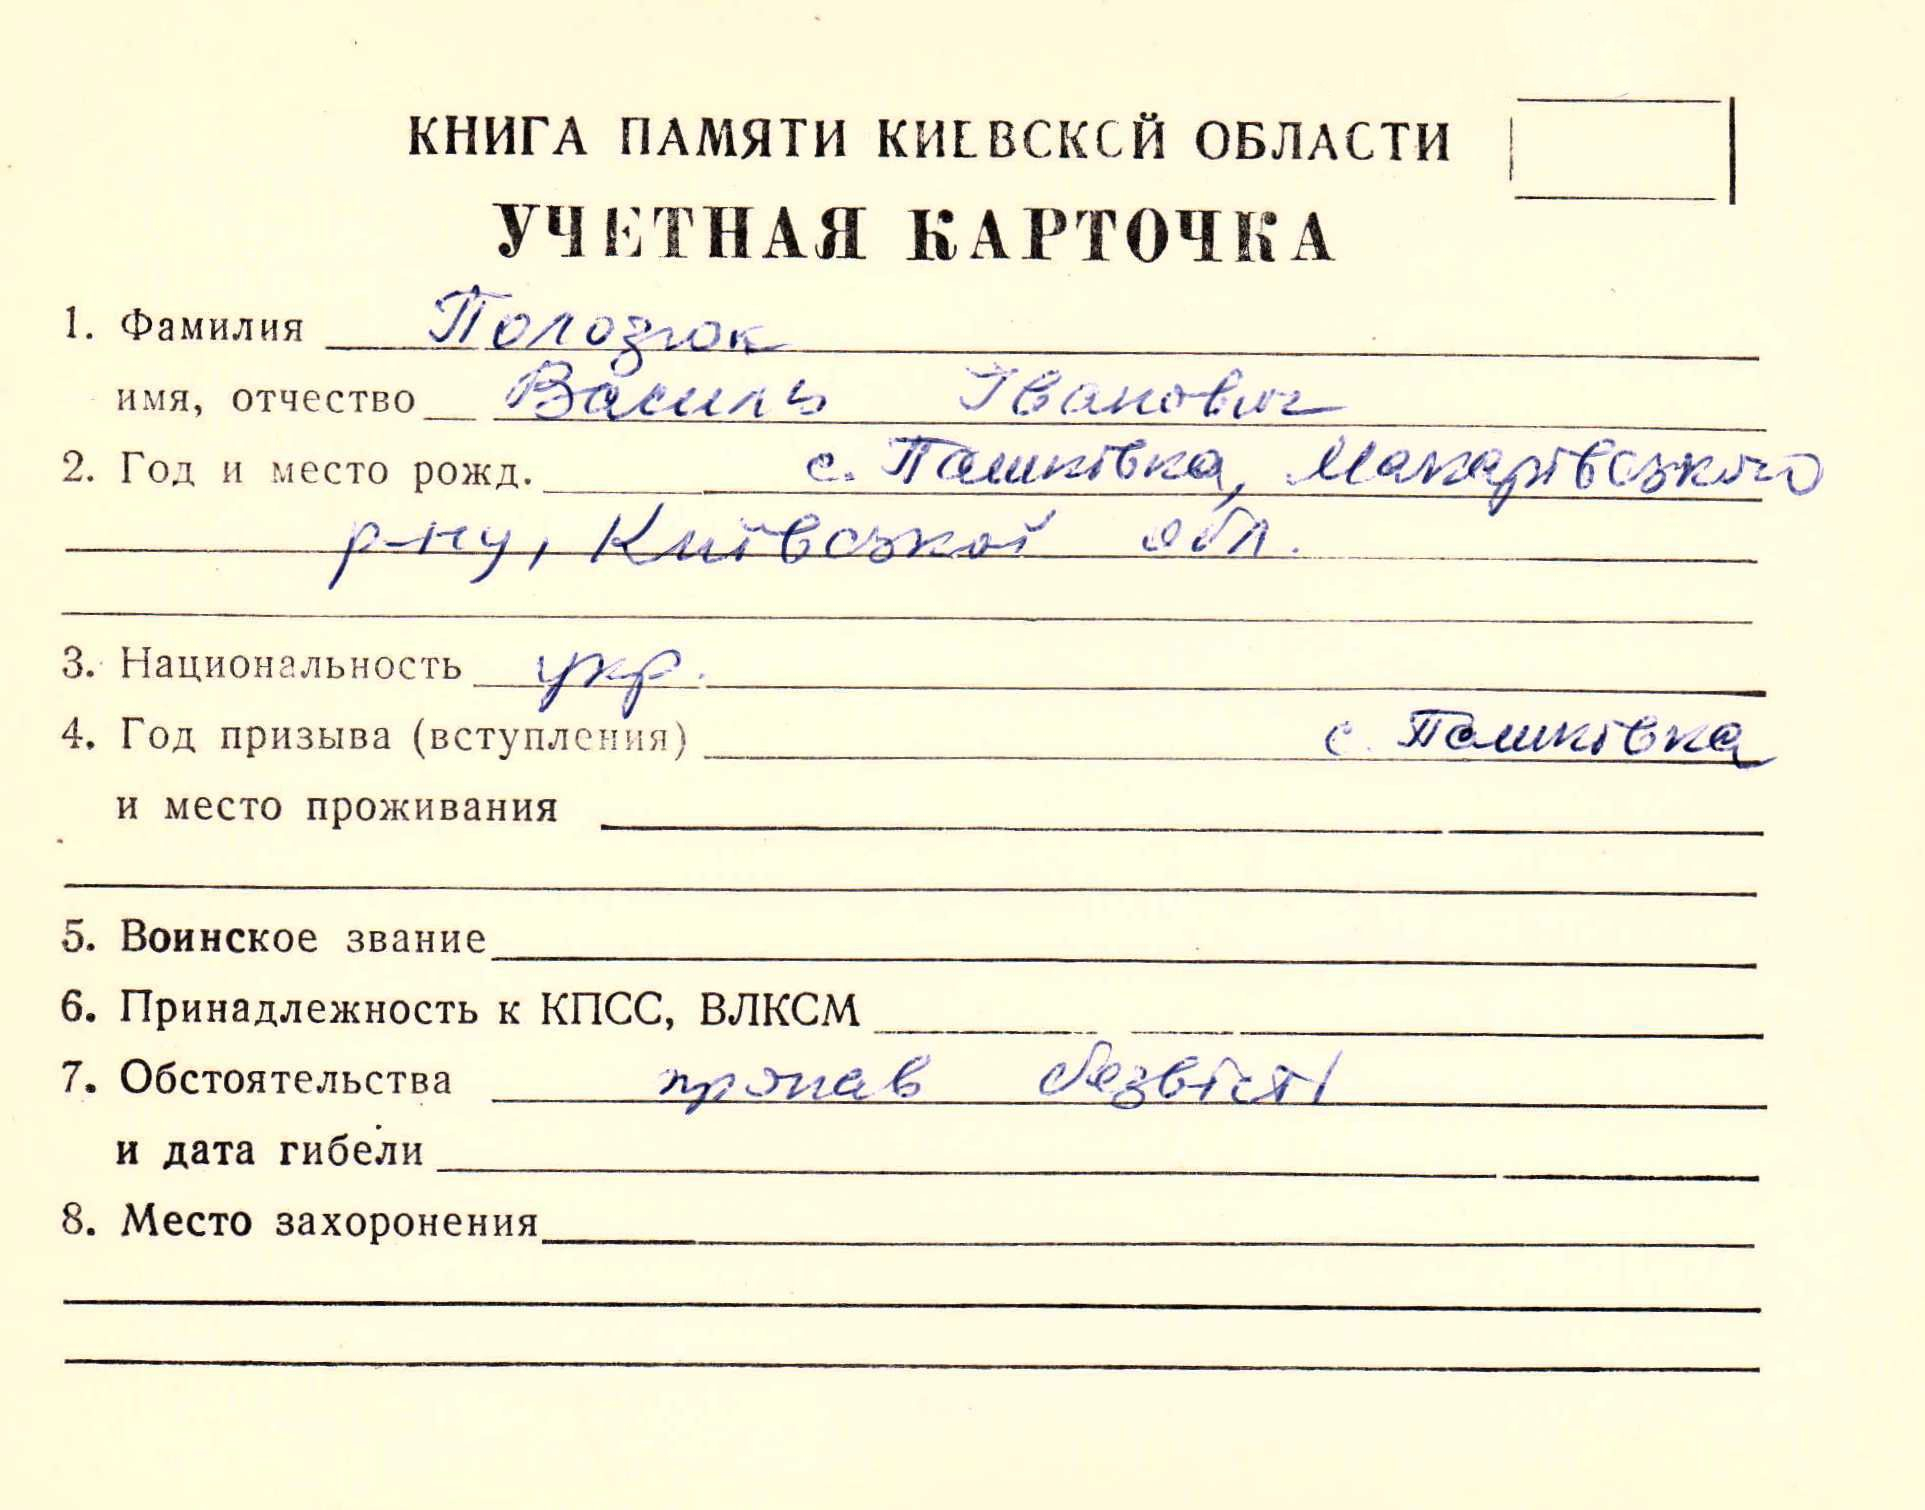 КНИГА ПАМЯТИ КИЕВСКОЙ ОБЛАСТИ
УЧЕТНАЯ КАРТОЧКА
1. Фамилия Полозюк
имя, отчество Василь Іванович
2. Год и место рожд. с. Пашківка, Макарівського
р-ну, Київської обл.
3. Национальность укр.
4. Год призыва (вступления) с. Пашківка
и место проживания
5. Воинское звание
6. Принадлежность к КПСС, ВЛКСМ
7. Обстоятельства пропав безвісті
и дата гибели
8. Место захоронения